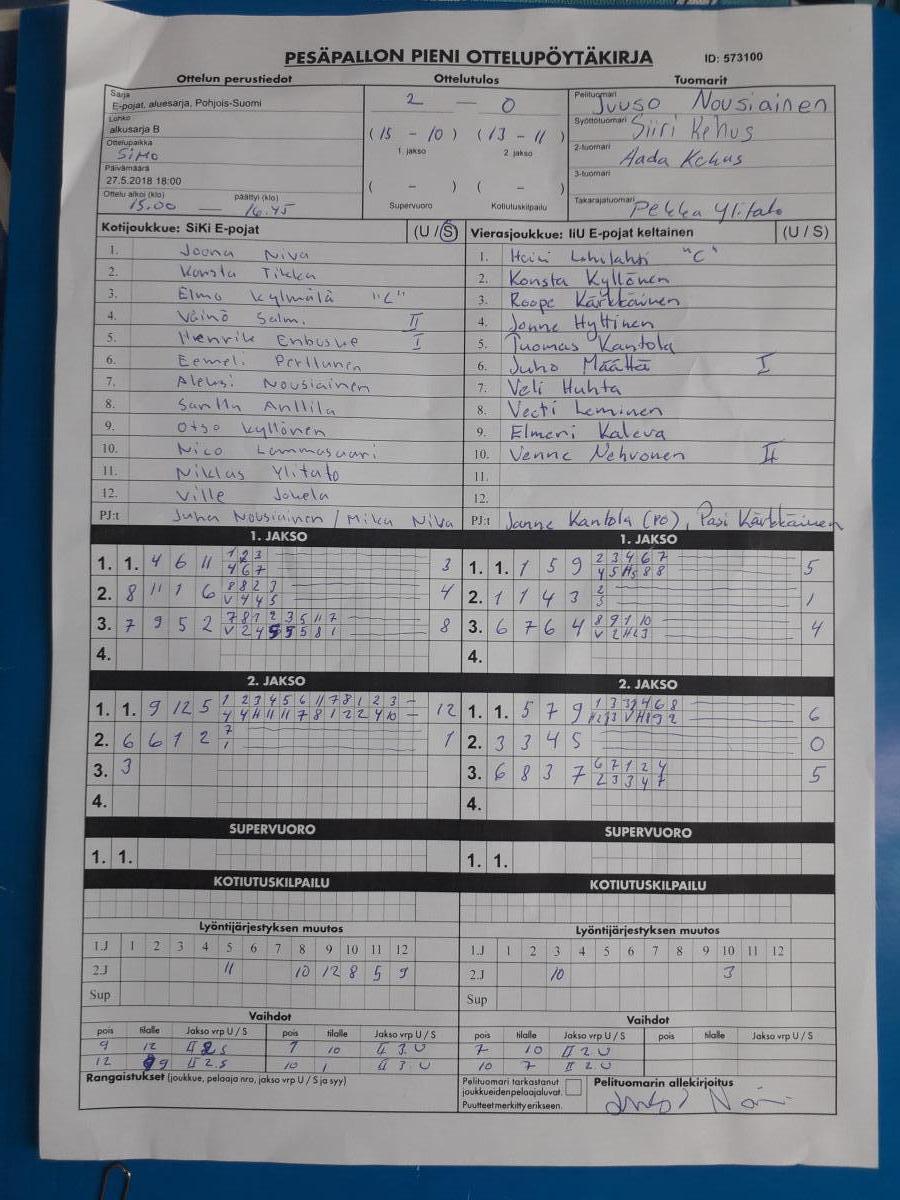 PESÄPALLON PIENI OTTELUPÖYTÄKIRJA ID: 573100
Ottelun perustiedot Ottelutulos Tuomarit
Sarja
E-pojat, aluesarja, Pohjois-Suomi
Lohko
alkusarja B
Ottelupaikka
SiMO
Päivämäärä
27.5.2018 18:00
Ottelu alkoi (klo) päättyi (klo)
15.00 — 16.45
2 — 0
(15 - 10) (13 - 11)
1. jakso 2. jakso
( - ) ( - )
Supervuoro Kotiutuskilpailu
Pelituomari Juuso Nousiainen
Syöttötuomari Siiri Kehus
2-tuomari Aada Kehus
3-tuomari
Takarajatuomari Pekka Ylitalo
Kotijoukkue: SiKi E-pojat (U / S)
1. Joona Niva
2. Konsta Tikka
3. Elmo Kylmälä "C"
4. Väinö Salm. II
5. Henrik Enbuske I
6. Eemeli Perttunen
7. Aleksi Nousiainen
8. Santtu Anttila
9. Otso Kyllönen
10. Nico Lammasaari
11. Niklas Ylitalo
12. Ville Jokela
PJ:t Juha Nousiainen / Mika Niva
Vierasjoukkue: IiU E-pojat keltainen (U / S)
1. Heiki "C"
2. Konsta Kyllönen
3. Roope Kärkkäinen
4. Jonne Hyttinen
5. Tuomas Kantola
6. Juho Määttä I
7. Veli Huhta
8. Veeti Leminen
9. Elmeri Kaleva
10. Venne Nehvonen II
11.
12.
PJ:t Janne Kantola (PO), Pasi Kärkkäinen
1. JAKSO
1. 1. 4 6 11 1 2 3 3
4 6 7
2. 8 11 1 6 8 8 2 3 4
V 4 4 5
3. 7 9 5 2 7 8 1 2 3 5 11 7 8
V 2 4 5 5 5 8 1
4.
1. JAKSO
1. 1. 1 5 9 2 3 4 6 7 5
4 5 H5 8 8
2. 1 1 4 3 2 1
3
3. 6 7 6 4 8 9 1 10 4
V 2 H2 3
4.
2. JAKSO
1. 1. 9 12 5 1 2 3 4 5 6 11 7 8 1 2 3 - 12
4 4 H 11 11 7 8 1 2 2 4 10 -
2. 6 6 1 2 7 1
1
3. 3
4.
2. JAKSO
1. 1. 5 7 9 6
2. 3 3 4 5 0
3. 6 8 3 7 6 7 1 2 4 5
2 3 3 4 7
4.
SUPERVUORO
1. 1.
SUPERVUORO
1. 1.
KOTIUTUSKILPAILU
KOTIUTUSKILPAILU
Lyöntijärjestyksen muutos
1.J 1 2 3 4 5 6 7 8 9 10 11 12
2.J 11 10 12 8 5 9
Sup
Lyöntijärjestyksen muutos
1.J 1 2 3 4 5 6 7 8 9 10 11 12
2.J 10 3
Sup
Vaihdot
pois tilalle Jakso vrp U / S pois tilalle Jakso vrp U / S
9 12 II 2 S 7 10 II 3. U
12 9 II 2. S 10 1 II 3. U
Vaihdot
pois tilalle Jakso vrp U / S pois tilalle Jakso vrp U / S
7 10 II 2 U
10 7 II 2. U
Rangaistukset (joukkue, pelaaja nro, jakso vrp U / S ja syy)
Pelituomari tarkastanut
joukkueiden pelaajaluvat.
Puutteet merkitty erikseen.
Pelituomarin allekirjoitus